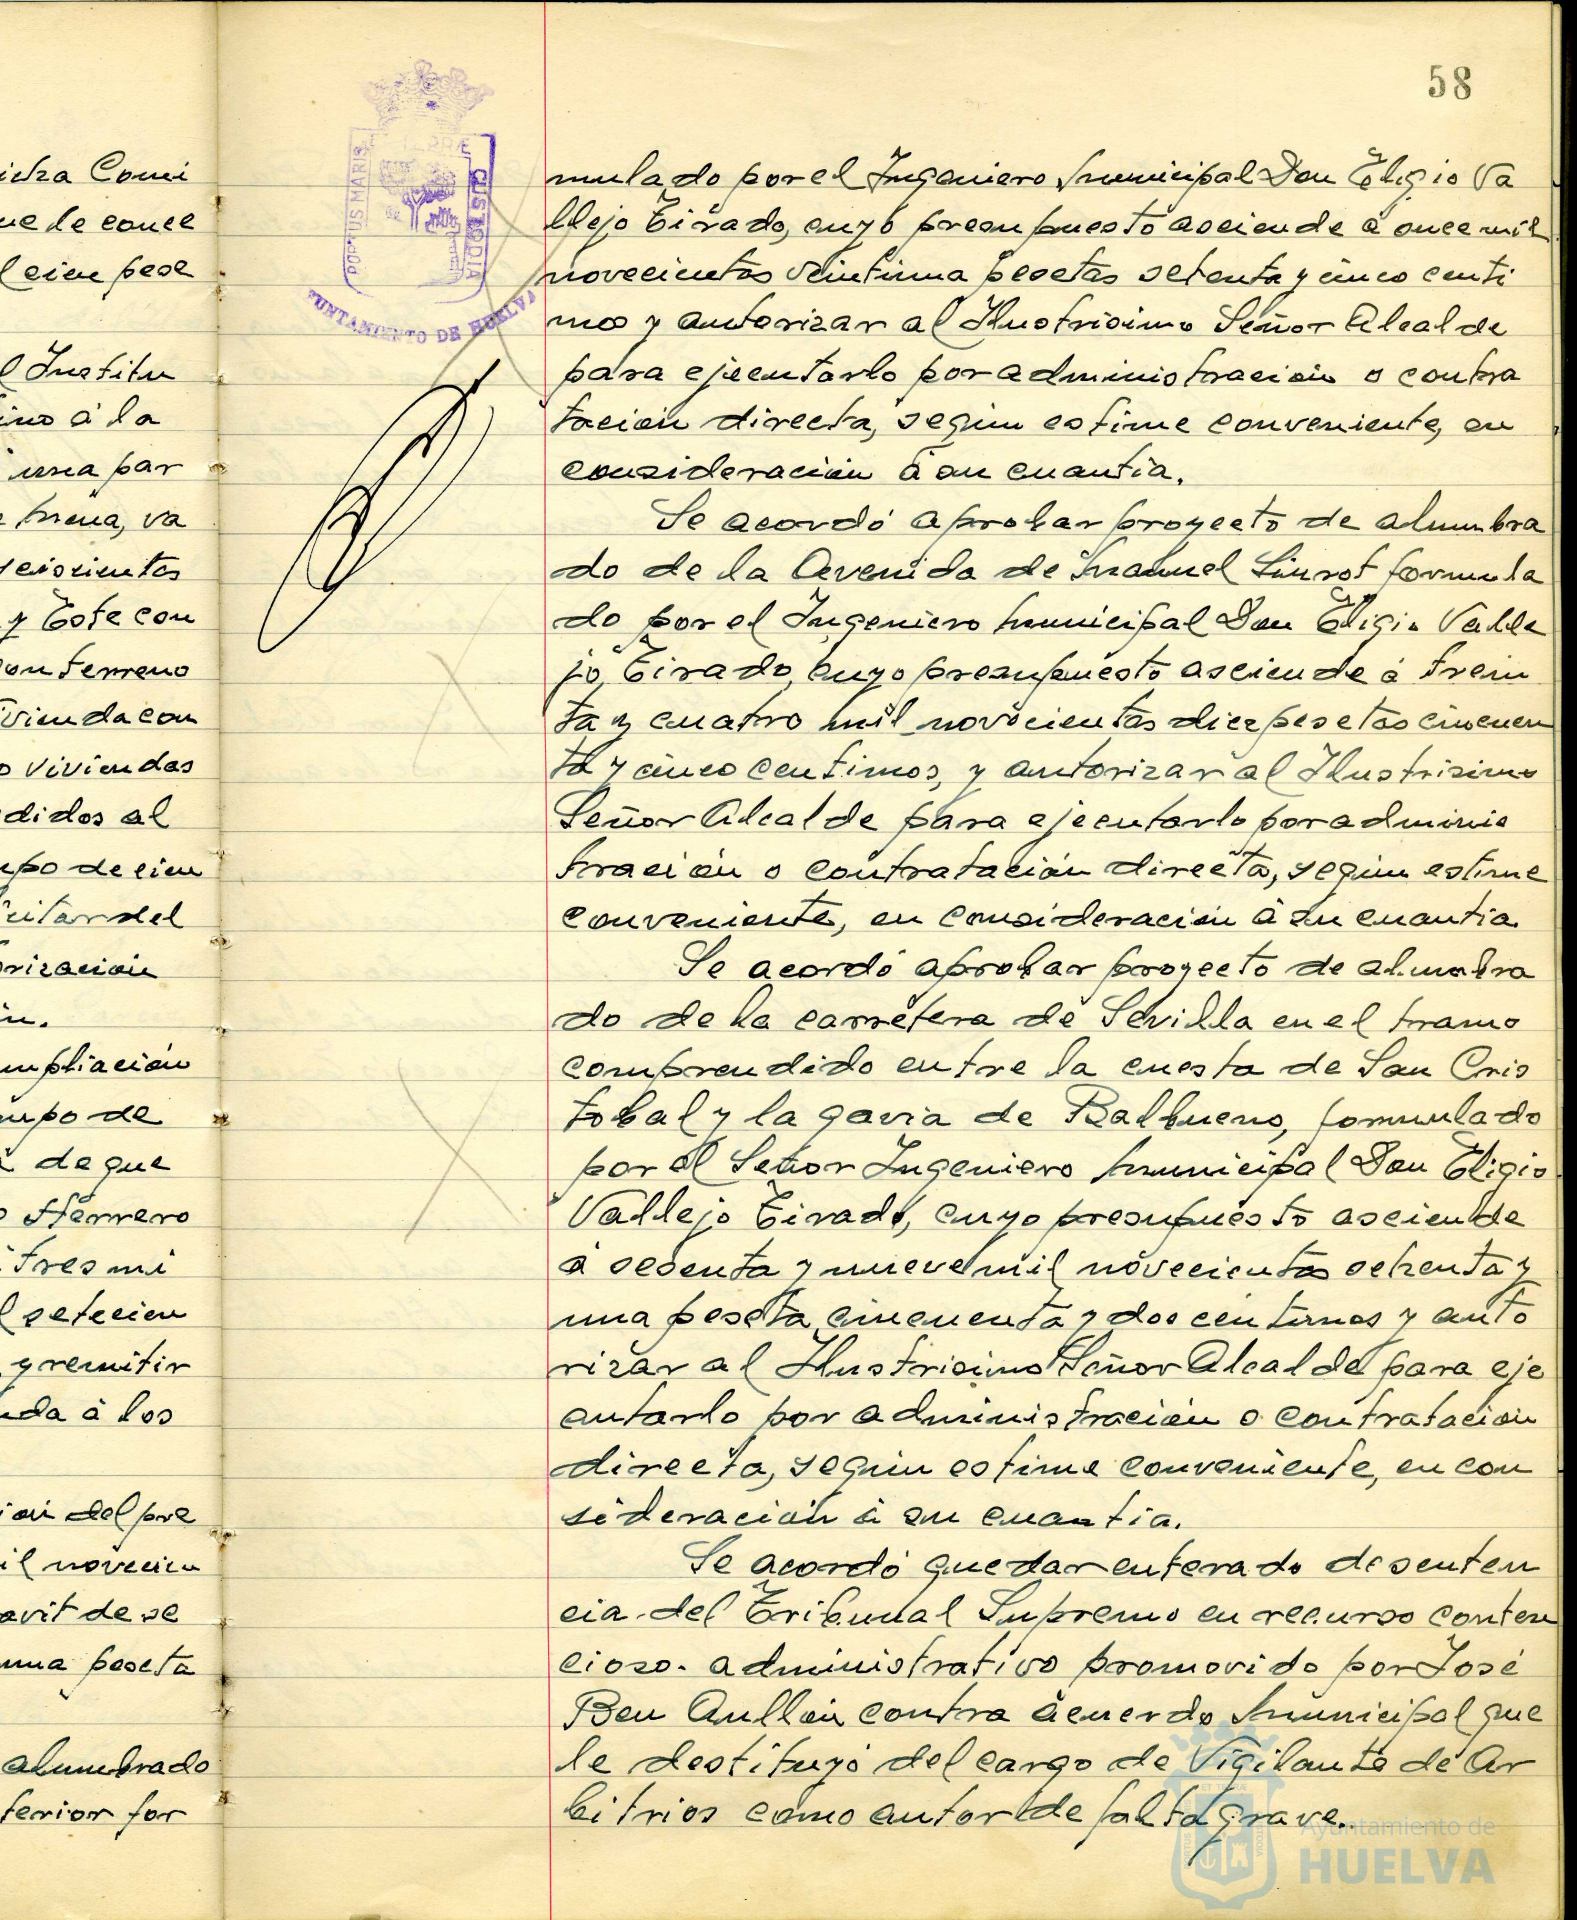 icha Comi
ue le conce
l cien pese
l Institu
ino á la
una par
buena, va
seiscientos
y Este con
on terreno
vivienda con
o viviendas
didos al
upo de cien
citar del
orizacion
n.
mpliación
upo de
de que
o Herrero
tres mi
l setecien
y remitir
nda á los
ion del pre
il novecien
avit de se
una peseta
alumbrado
terior for
58
PORTUS MARIS
TERRÆ
CUSTODIA
UNTAMIENTO DE HUELVA
mulado por el Ingeniero Municipal Don Eligio Va
llejo Tirado, cuyo presupuesto asciende á once mil
novecientas veintiuna pesetas setenta y cinco centi
mos y autorizar al Ilustrisimo Señor Alcalde
para ejecutarlo por administracion o contra
tacion directa, segun estime conveniente, en
consideracion á su cuantia.
Se acordó aprobar proyecto de alumbra
do de la Avenida de Manuel Siurot formula
do por el Ingeniero Municipal Don Eligio Valle
jo Tirado, cuyo presupuesto asciende á trein
ta y cuatro mil novecientas diez pesetas cincuen
ta y cinco centimos, y autorizar al Ilustrisimo
Señor Alcalde para ejecutarlo por adminis
tración o contratación directa, segun estime
conveniente, en consideracion á su cuantia.
Se acordó aprobar proyecto de alumbra
do de la carretera de Sevilla en el tramo
comprendido entre la cuesta de San Cris
tobal y la gavia de Balbueno, formulado
por el Señor Ingeniero Municipal Don Eligio
Vallejo Tirado, cuyo presupuesto asciende
á sesenta y nueve mil novecientas ochenta y
una peseta cincuenta y dos centimos y auto
rizar al Ilustrisimo Señor Alcalde para eje
cutarlo por administración o contratacion
directa, segun estime conveniente, en con
sideracion á su cuantia.
Se acordó quedar enterado de senten
cia del Tribunal Supremo en recurso conten
cioso-administrativo promovido por José
Beu Aullón contra acuerdo Municipal que
le destituyó del cargo de Vigilante de Ar
bitrios como autor de falta grave.
Ayuntamiento de
HUELVA